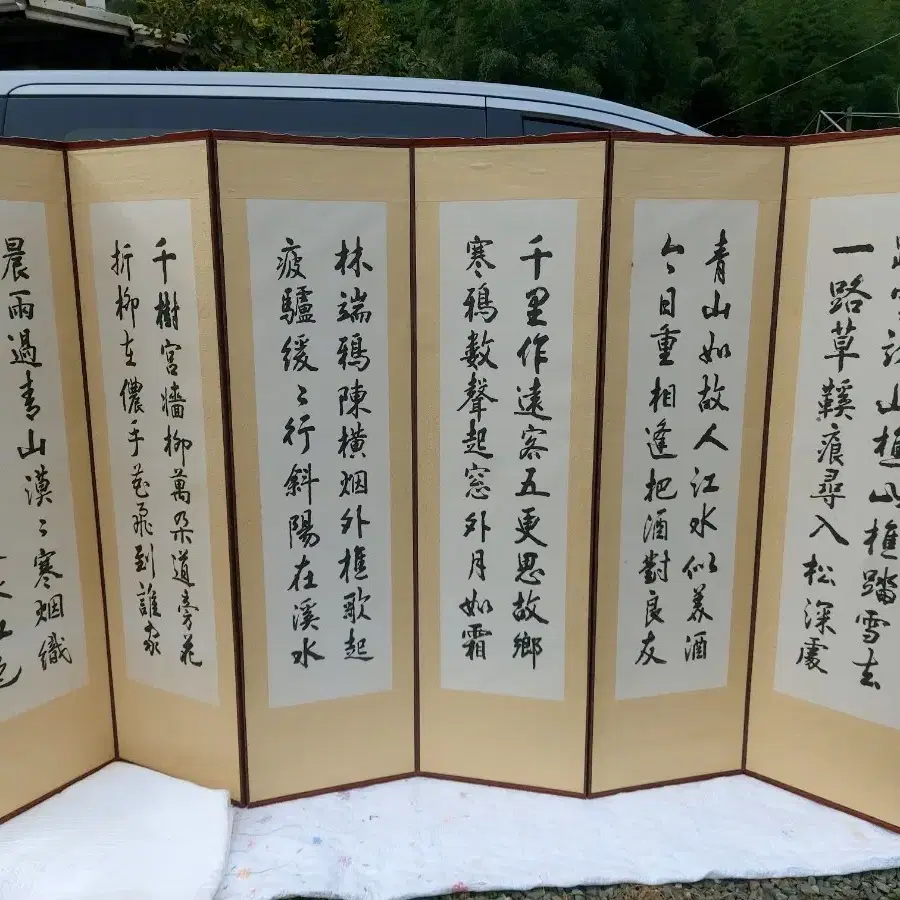 山樵山樵踏雪去
一路草鞵痕尋入松深處
青山如故人江水似美酒
今日重相逢把酒對良友
千里作遠客五更思故鄉
寒鴉數聲起窓外月如霜
林端鴉陳橫烟外樵歌起
疲驢緩〻行斜陽在溪水
千樹宮墻柳萬朶道旁花
折柳在儂手花飛到誰家
晨雨過青山漠〻寒烟織